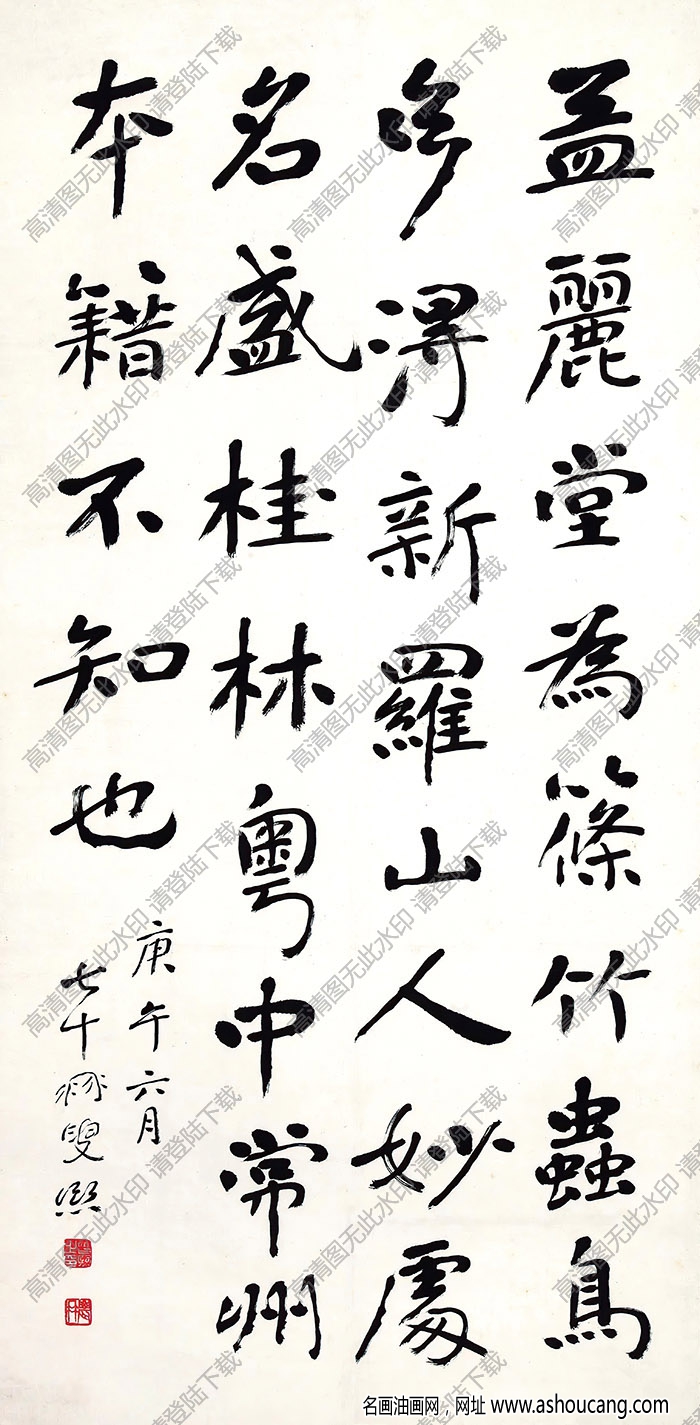 孟麗堂為篠竹蟲鳥
得新羅山人妙處
名盛桂林粤中常州
本籍不知也
庚午六月
七十髯叟熙
高清图无此水印 请登陆下载
名画油画网，网址 www.ashoucang.com